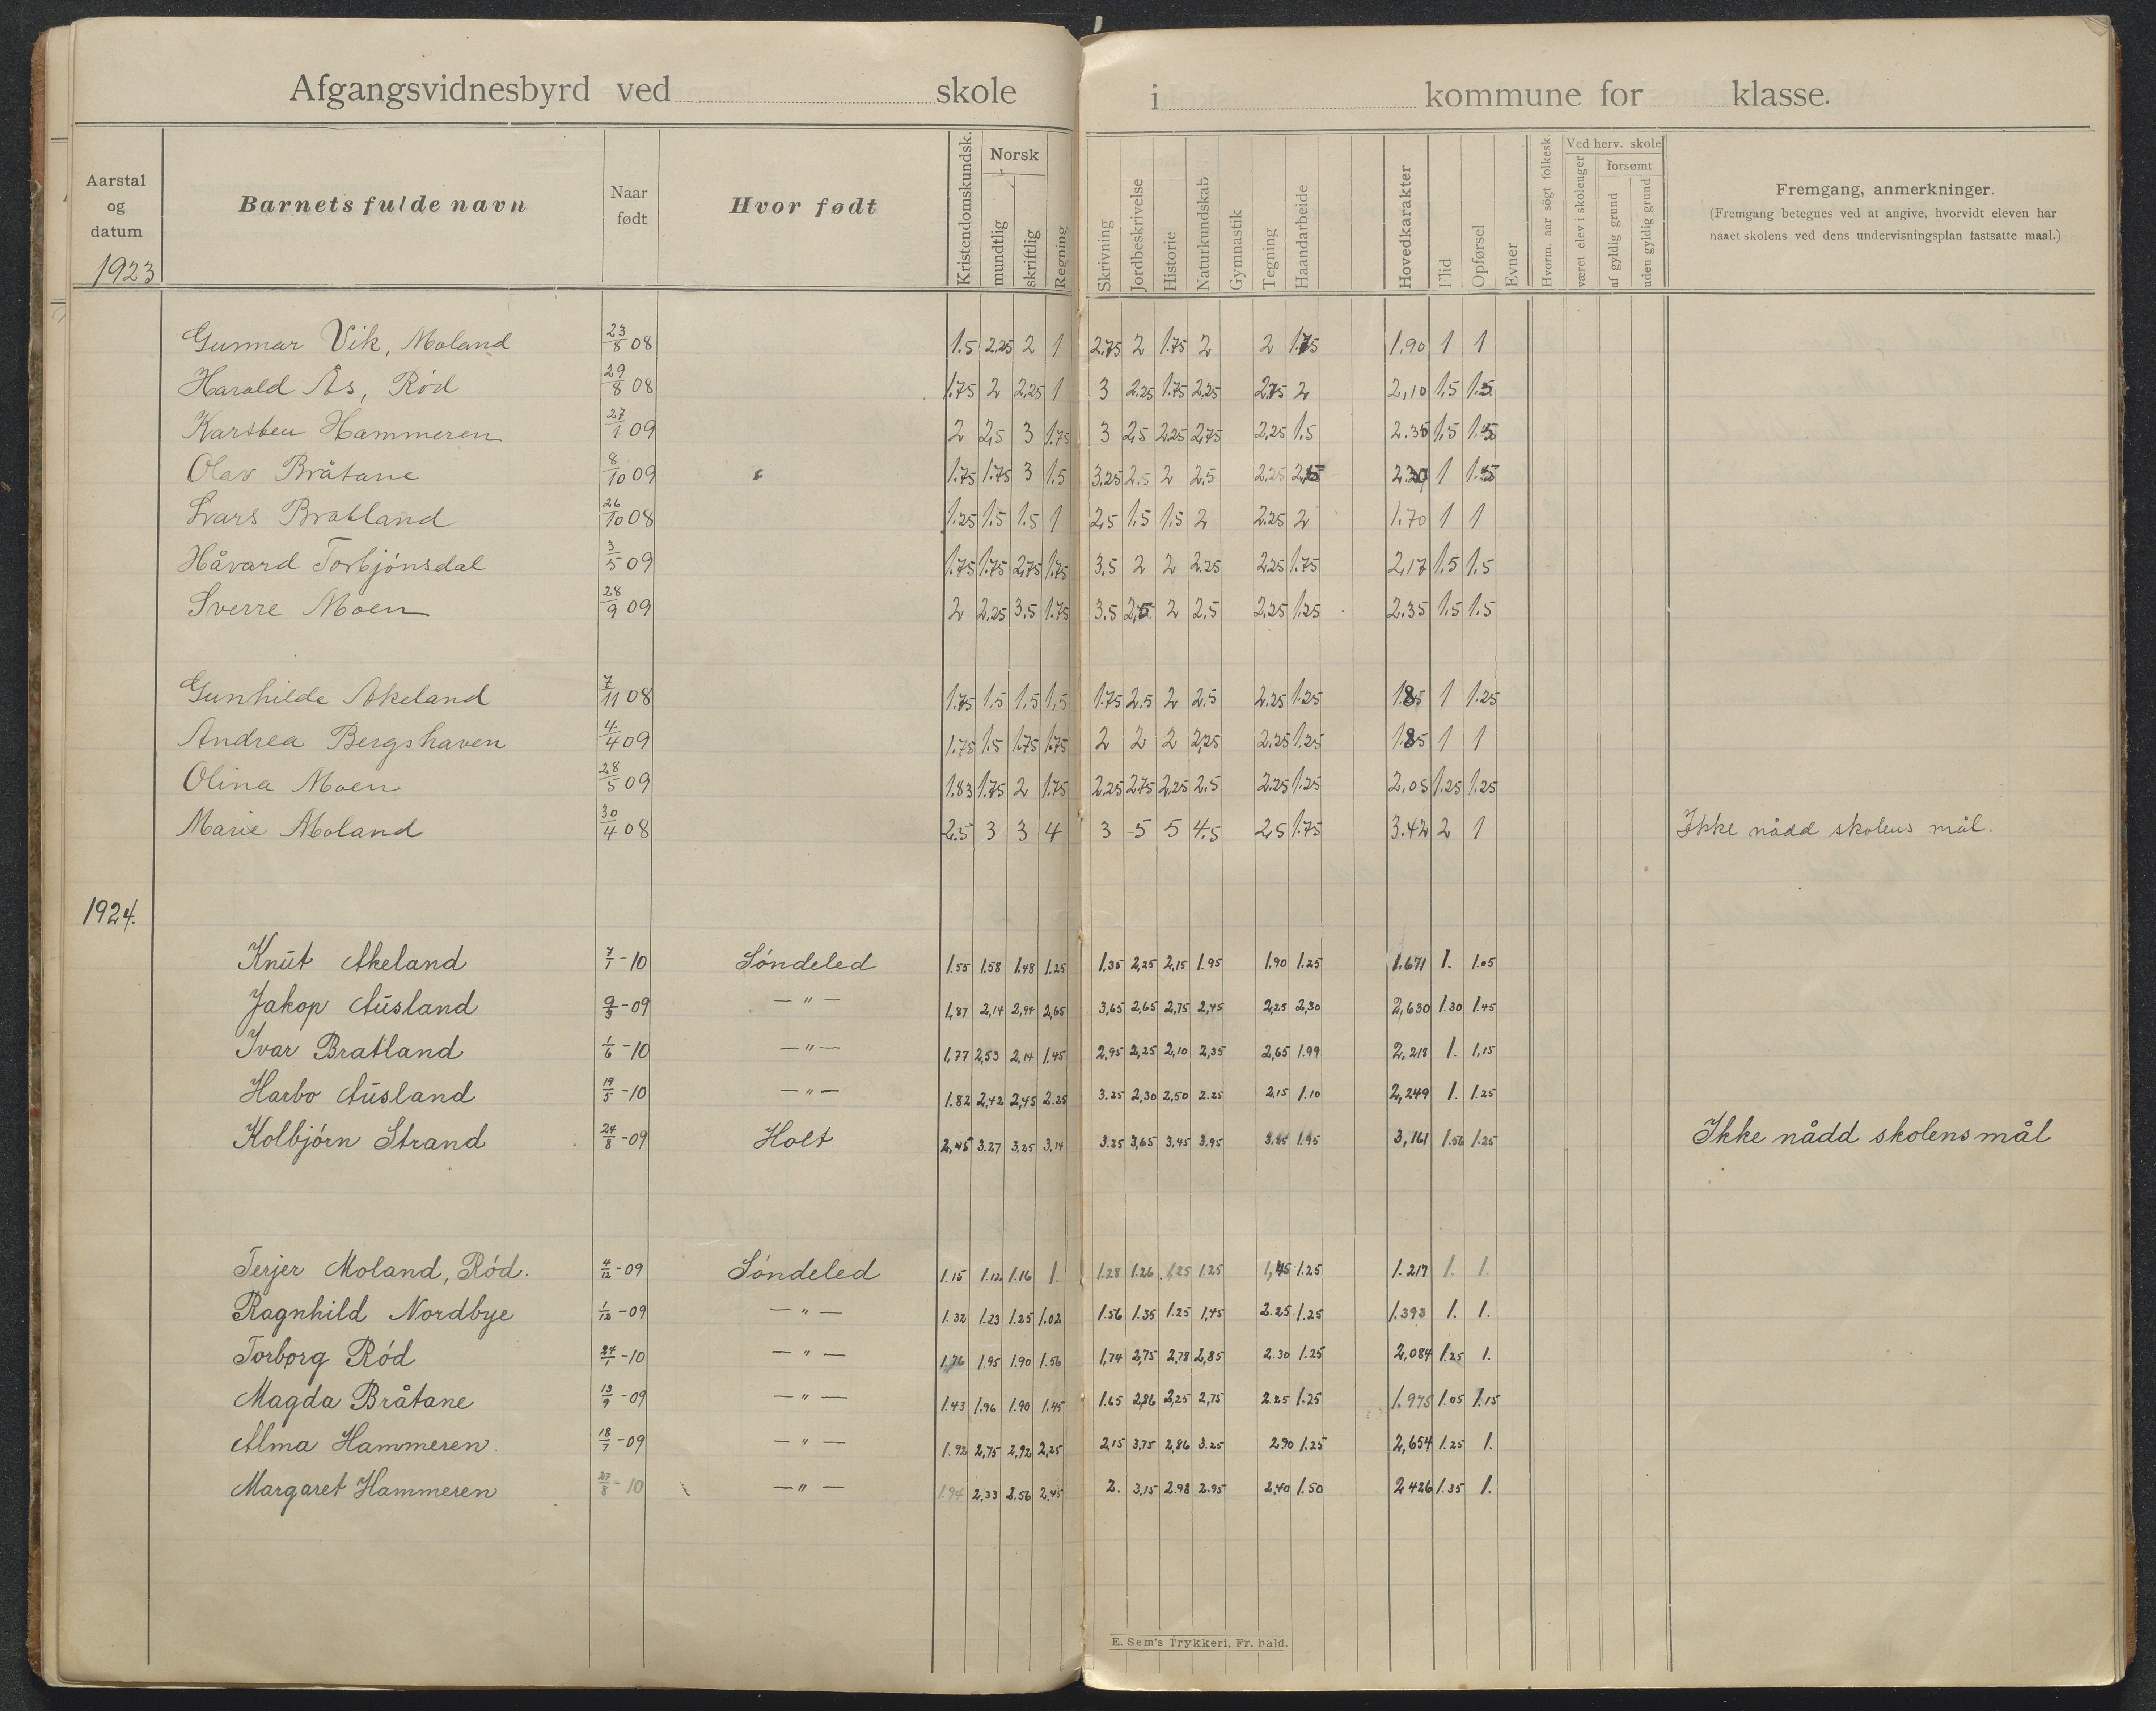 Afgangsvidnesbyrd ved skole i kommune for klasse.
Aarstal og datum
Barnets fulde navn
Naar født
Hvor født
Kristendomskundsk.
Norsk
mundtlig
skriftlig
Regning
Skrivning
Jordbeskrivelse
Historie
Naturkundskab
Gymnastik
Tegning
Haandarbeide
Hovedkarakter
Flid
Opførsel
Evner
Hvorm. aar søgt folkesk
været elev i skoleuger
Ved herv. skole
forsømt
af gyldig grund
uden gyldig grund
Fremgang, anmerkninger.
(Fremgang betegnes ved at angive, hvorvidt eleven har
naaet skolens ved dens undervisningsplan fastsatte maal.)
1923
Gunnar Vik, Moland 23/8 08 1.5 2.25 2 1 2.75 2 1.75 2 2 1.75 1.90 1 1
Harald Ås, Rød 29/8 08 1.75 2 2.25 1 3 2.25 1.75 2.25 2.75 2 2,10 1,5 1.5
Karsten Hammeren 27/1 09 2 2,5 3 1.75 3 2,5 2.25 2,75 2,25 1.5 2.35 1,5 1.5
Olav Bråtane 8/10 09 1.75 1.75 3 1.5 3.25 2.5 2 2.5 2.25 2.5 2.30 1 1.5
Lars Bratland 26/10 08 1.25 1.5 1.5 1 2,5 1.5 1,5 2 2.25 2 1.70 1 1
Håvard Torbjónsdal 3/5 09 1.75 1.75 2,75 1.75 3.5 2 2 2.25 2.25 1.75 2,17 1,5 1.5
Sverre Moen 28/9 09 2 2,25 3,5 1.75 3.5 2,5 2 2,5 2,25 1.25 2.35 1.5 1.5
Gunhilde Akeland 7/11 08 1.75 1.5 1,5 1,5 1.75 2.5 2 2,5 2.25 1.25 1.85 1 1.25
Andrea Bergshaven 4/4 09 1.75 1.5 1.75 1.75 2 2 2 2,25 2.25 1.25 1.85 1 1
Olina Moen 28/5 09 1.83 1.75 2 1.75 2.25 2.75 2,25 2.5 2.25 1.25 2,05 1.25 1.25
Marie Moland 30/4 08 2.5 3 3 4 3 5 5 4.5 2,5 1.75 3.42 2 1 Ikke nådd skolens mål.
1924.
Knut Akeland 7/1-10 Søndeled 1.55 1.58 1.48 1.25 1.35 2,25 2,15 1.95 1.90 1.25 1.671 1. 1.05
Jakop Ausland 9/3-09 — " — 1,87 2,14 2,94 2,65 3,65 2,65 2,75 2,45 2,25 2,30 2,630 1.30 1.45
Ivar Bratland 1/6-10 — " — 1,77 2,53 2,14 1.45 2,95 2,25 2,10 2,35 2,65 1.99 2,218 1. 1,15
Harbo Ausland 19/5-10 — " — 1.82 2,42 2,45 2.25 3.25 2,30 2,50 2.25 2,15 1.10 2,249 1. 1.25
Kolbjørn Strand 24/8-09 Holt 2,45 3.27 3,25 3,14 3.25 3,65 3,45 3.95 1.95 3,161 1.56 1.25 Ikke nådd skolens mål
Terjer Moland, Rød. 4/12-09 Søndeled 1.15 1.12 1.16 1. 1.28 1.26 1,25 1.25 1,45 1.25 1.217 1. 1.
Ragnhild Nordbye 1/12-09 — " — 1.32 1.23 1.25 1.02 1.56 1.35 1.25 1,45 2.25 1.25 1.393 1. 1.
Torborg Rød 24/1-10 — " — 1,76 1.95 1.90 1.56 1,74 2,75 2,78 2,85 2.30 1.25 2,084 1.25 1.
Magda Bråtane 13/9-09 — " — 1.43 1.96 1.90 1.45 1.65 2,86 2,25 2,75 2.25 1.25 1.975 1.05 1.15
Alma Hammeren. 18/7-09 — " — 1.92 2,75 2,92 2,25 2,15 3,75 2,86 3.25 2.90 1.25 2,654 1.25 1.
Margaret Hammeren 27/8-10 — " — 1.94 2,33 2.56 2,45 2. 3,15 2.98 2.95 2,40 1.50 2426 1.35 1.
E. Sem's Trykkeri, Fr. hald.